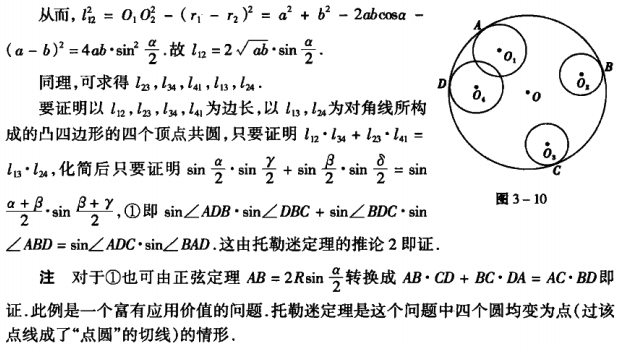 从而, l₁₂² = O₁O₂² - ( r₁ - r₂ )² = a² + b² - 2abcosα -
( a - b )² = 4ab·sin² α/2 .故 l₁₂ = 2√ab · sin α/2 .
同理,可求得 l₂₃ , l₃₄ , l₄₁ , l₁₃ , l₂₄ .
要证明以 l₁₂ , l₂₃ , l₃₄ , l₄₁ 为边长,以 l₁₃ , l₂₄ 为对角线所构
成的凸四边形的四个顶点共圆,只要证明 l₁₂ · l₃₄ + l₂₃ · l₄₁ =
l₁₃ · l₂₄ ,化简后只要证明 sin α/2 · sin γ/2 + sin β/2 · sin δ/2 = sin
α+β/2 · sin β+γ/2 ,①即 sin∠ADB·sin∠DBC + sin∠BDC·sin
∠ABD = sin∠ADC·sin∠BAD .这由托勒迷定理的推论 2 即证.
注 对于①也可由正弦定理 AB = 2Rsin α/2 转换成 AB·CD + BC·DA = AC·BD 即
证.此例是一个富有应用价值的问题.托勒迷定理是这个问题中四个圆均变为点(过该
点线成了“点圆”的切线)的情形.
A
O₁
B
O₂
D
O₄
O
O₃
C
图 3-10